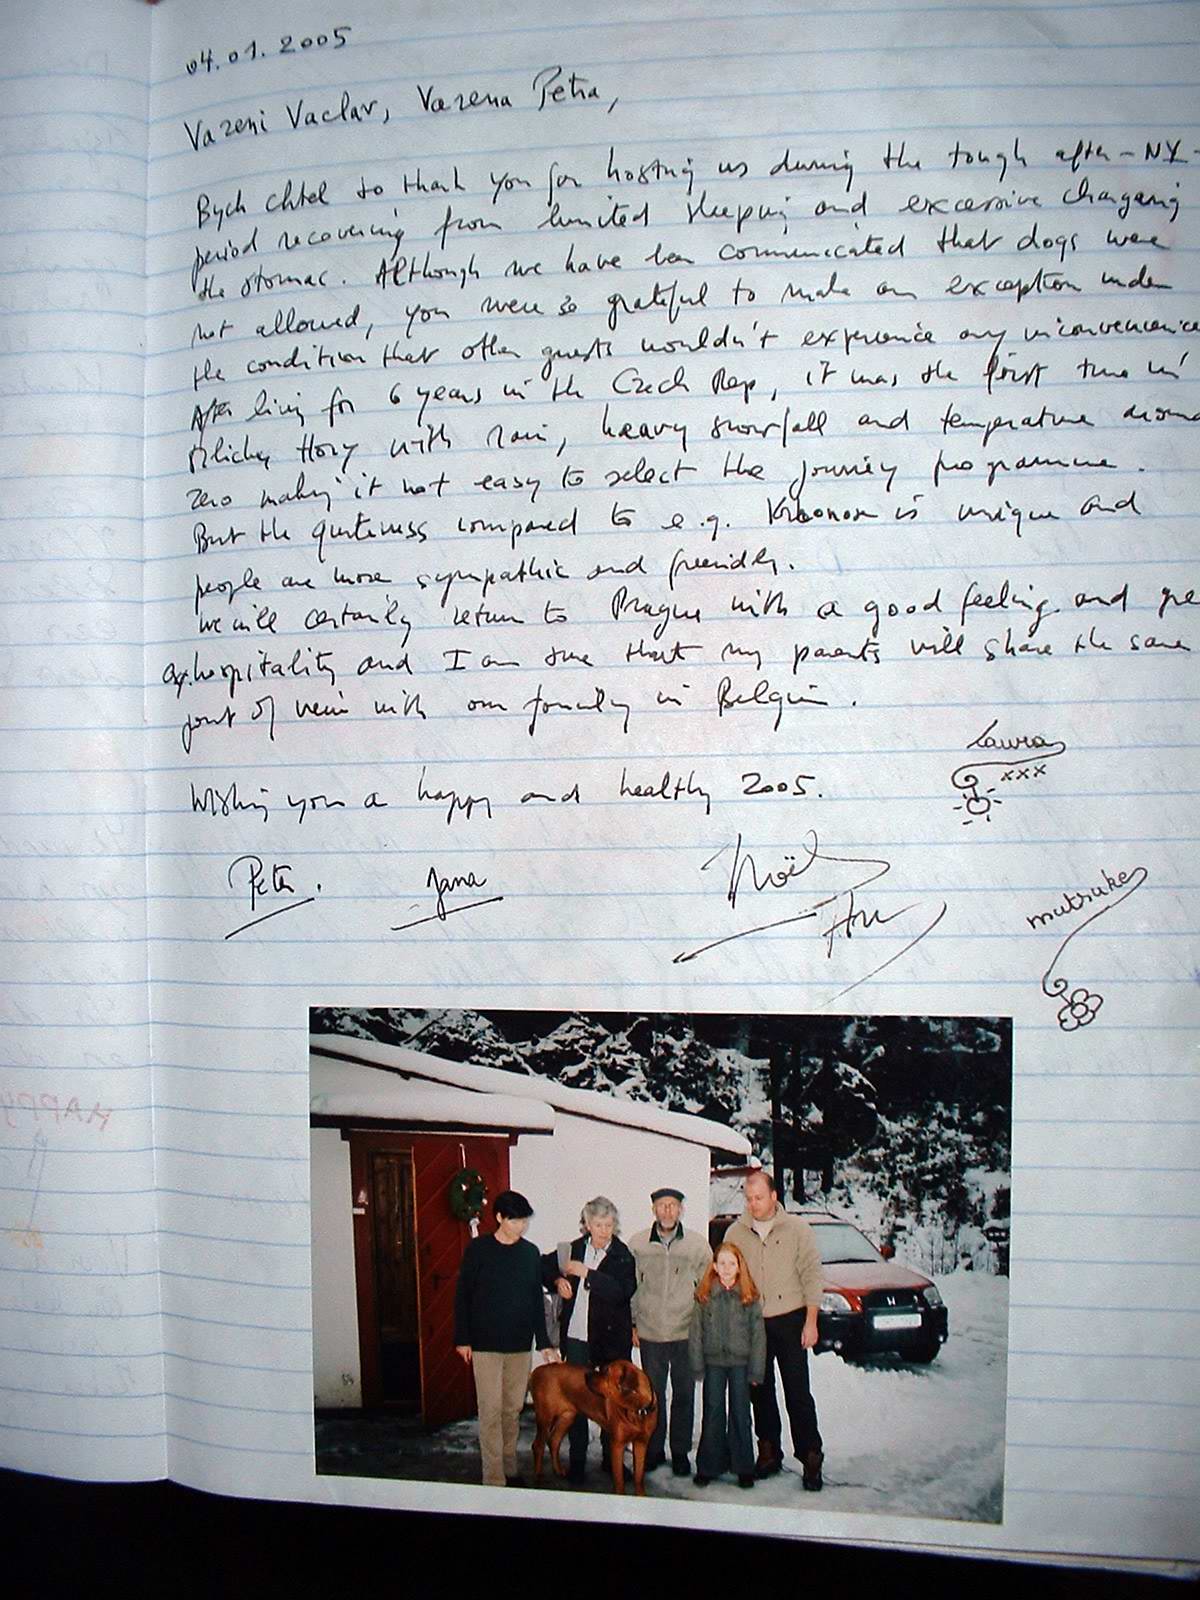 04.01.2005
Vazeni Vaclav, Vazena Petra,
Bych chtel to thank you for hosting us during the tough after-NY-
period recovering from limited sleeping and excessive charging
the stomac. Although we have been communicated that dogs were
not allowed, you were so grateful to make an exception under
the condition that other guests wouldn't experience any inconvenience
After living for 6 years in the Czech Rep, it was the first time in
Orlicky Hory with rain, heavy snowfall and temperature around
zero making it not easy to select the journey programme.
But the quietness compared to e.g. Krkonose is unique and
people are more sympathic and friendly.
We will certainly return to Prague with a good feeling and
hospitality and I am sure that my parents will share the same
point of view with our family in Belgium.
Wishing you a happy and healthy 2005.
Laura
xxx
Peter. Jana Noël
mutsuke
HAPPY